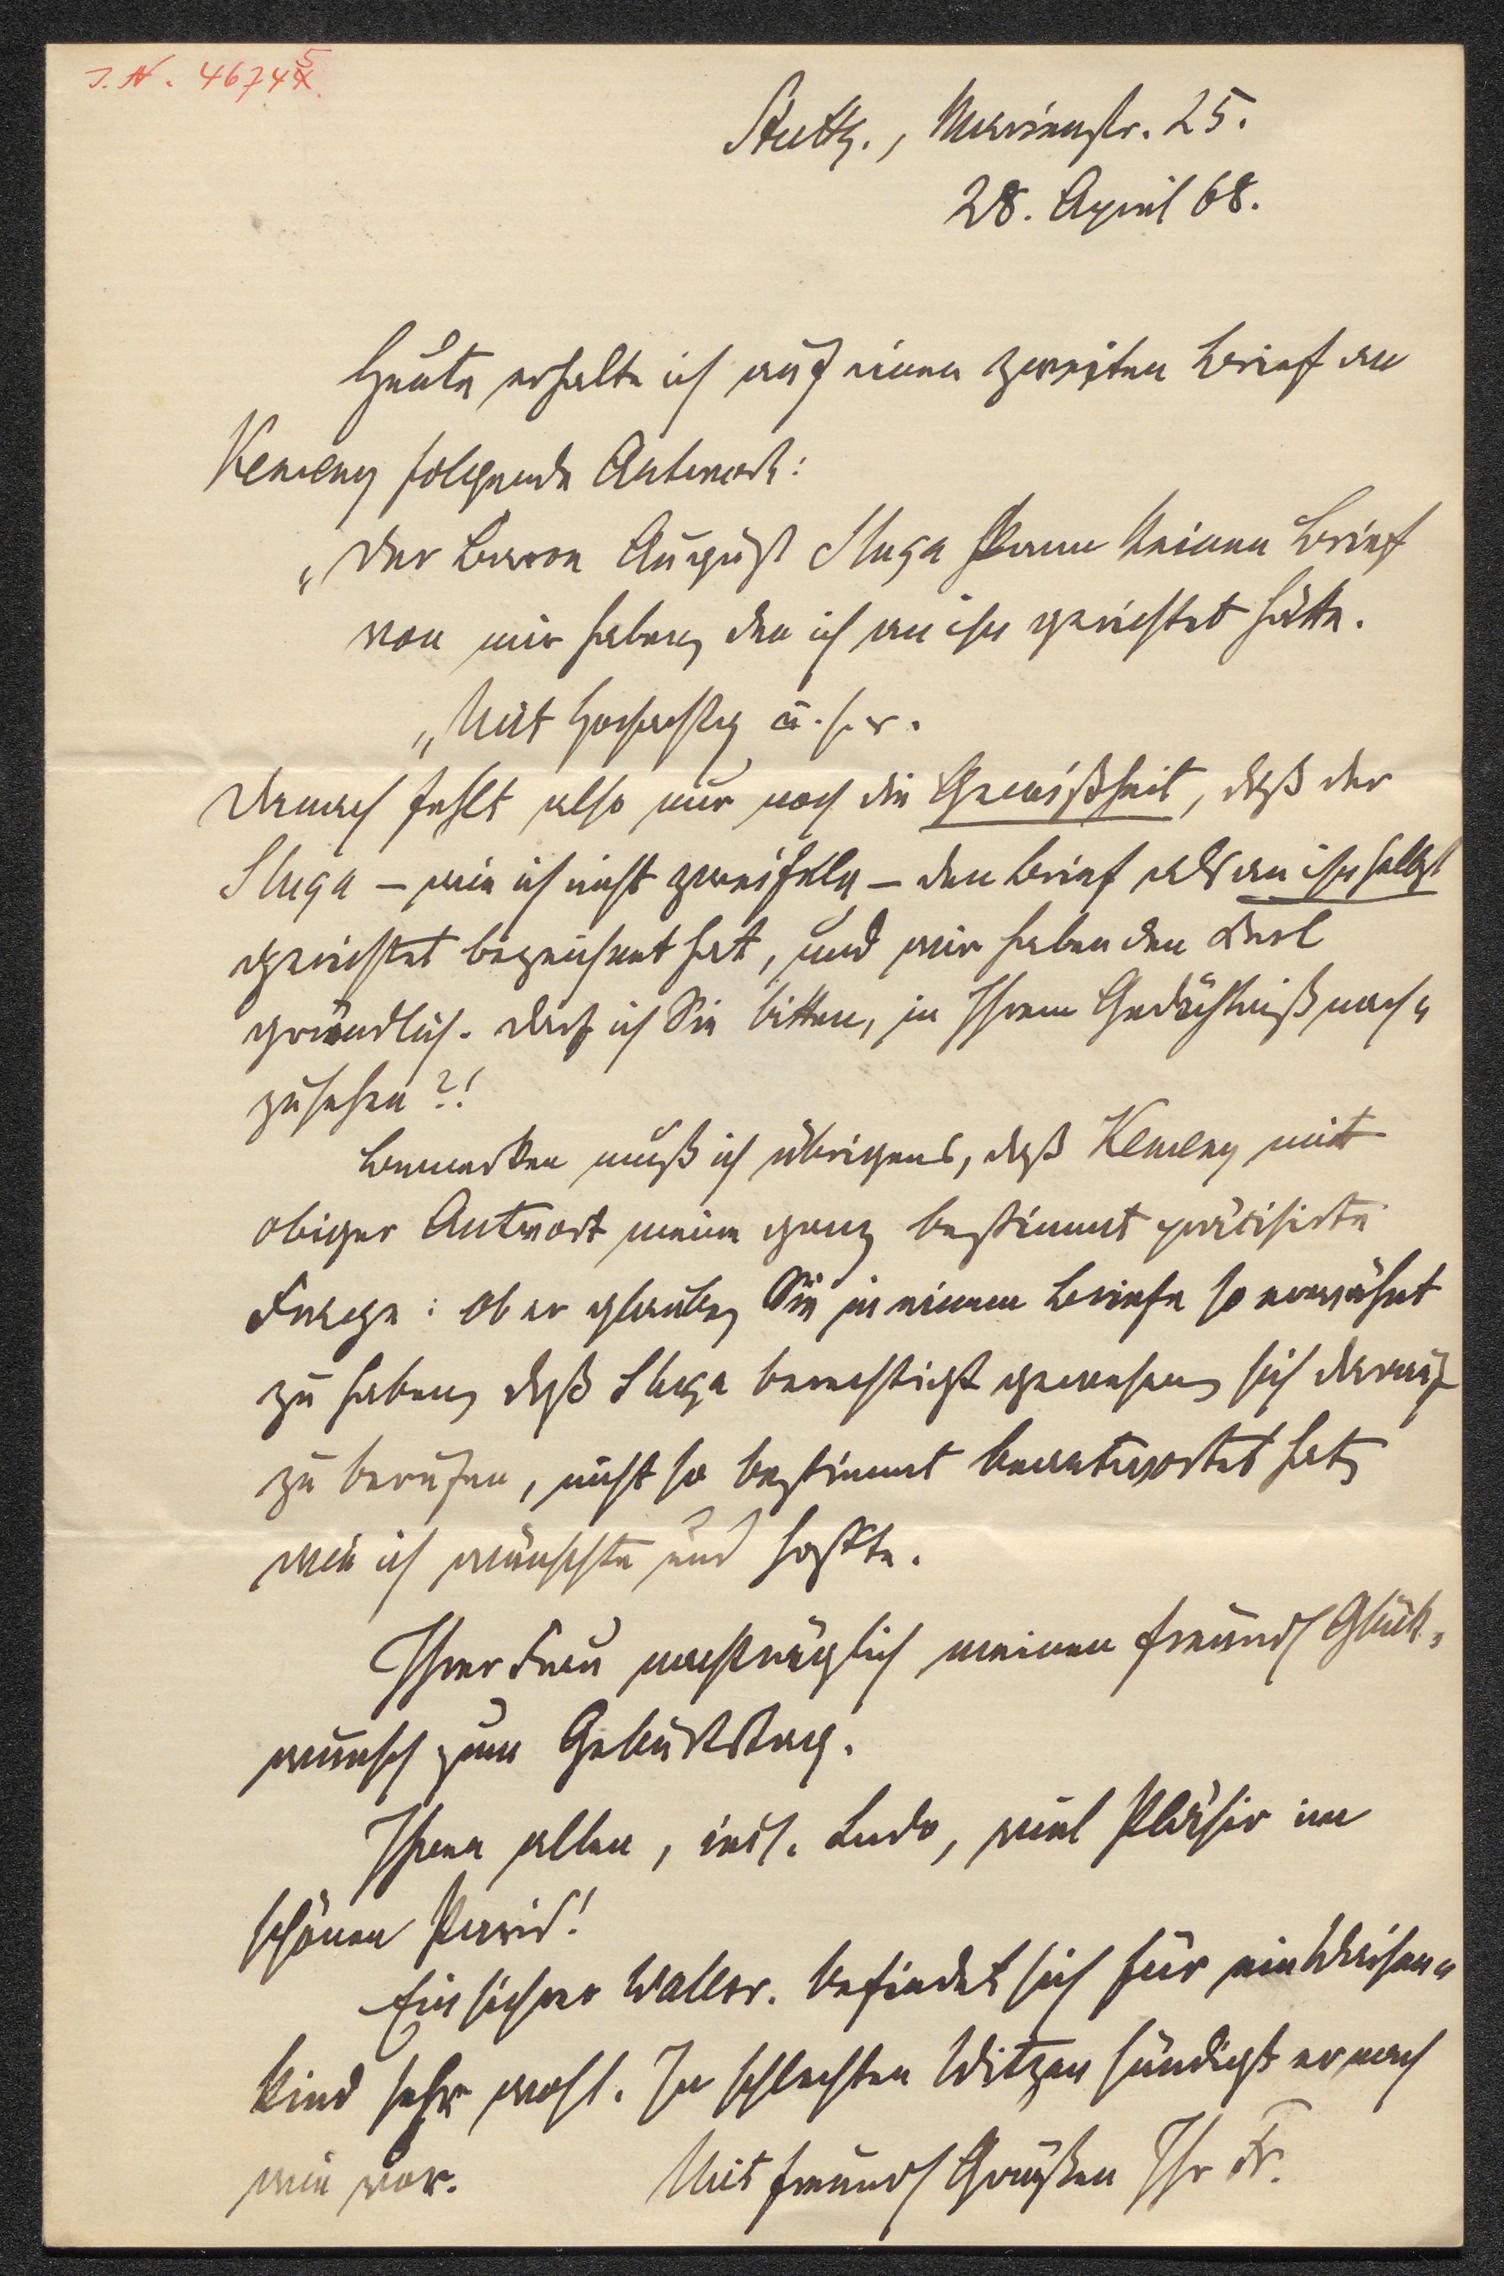 J. N. 46745
Stuttg., Marienstr. 25.
28. April 68.
Heute erhalte ich auf einen zweiten Brief an
Kemeny folgende Antwort:
„Der Baron August Sluga kann keinen Brief
von mir haben, den ich an ihn gerichtet hätte.
„Mit Hochachtg u. s. w.
Darnach fehlt also nur noch die Gewißheit, daß der
Sluga – wie ich nicht zweifele – den Brief als an ihn selbst
gerichtet bezeichnet hat, und wir haben den Kerl
gründlich. Darf ich Sie bitten, in Ihrem Gedächtniß nach-
zusehen?!
Bemerken muß ich übrigens, daß Kemeny mit
obiger Antwort meine ganz bestimmt präcisirte
Frage: ob er glaube, Sie in einem Briefe so erwähnt
zu haben, daß Sluga berechtigt gewesen, sich darauf
zu berufen, nicht so bestimmt beantwortet hat,
wie ich wünschte und hoffte.
Ihrer Frau nachträglich meinen freundl Glück-
wunsch zum Geburtstag.
Ihnen allen, incl. Ludo, viel Pläsir im
schönen Paris!
Ein sichrer Wallr. befindet sich für ein Waisen-
kind sehr wohl. In schlechten Witzen sündigt er nach
wie vor. Mit freundl Grüßen Ihr Fr.